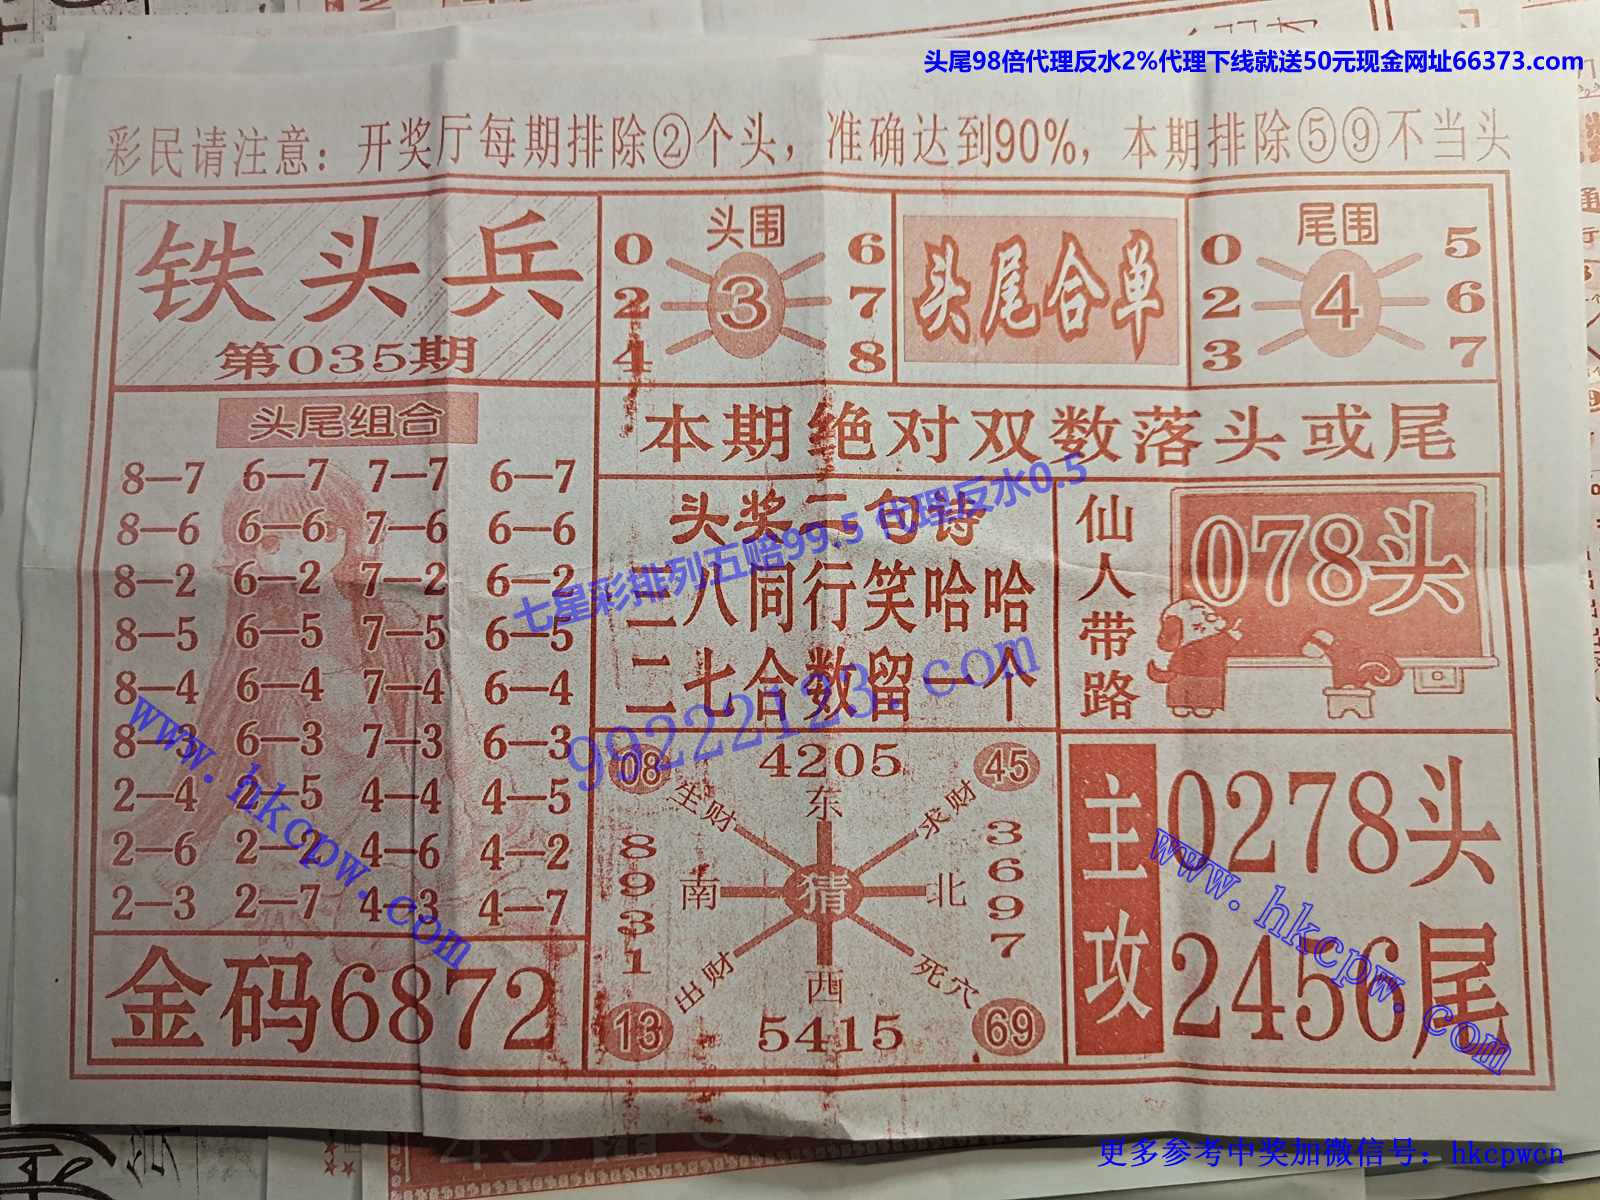 头尾98倍代理反水2%代理下线就送50元现金网址66373.com
彩民请注意：开奖厅每期排除②个头，准确达到90%，本期排除⑤⑨不当头
铁头兵
第035期
头围
0 6
2 3 7
4 8
头尾合单
尾围
0 5
2 4 6
3 7
本期绝对双数落头或尾
头尾组合
8—7 6—7 7—7 6—7
8—6 6—6 7—6 6—6
8—2 6—2 7—2 6—2
8—5 6—5 7—5 6—5
8—4 6—4 7—4 6—4
8—3 6—3 7—3 6—3
2—4 2—5 4—4 4—5
2—6 2—2 4—6 4—2
2—3 2—7 4—3 4—7
金码6872
头奖二句诗
三八同行笑哈哈
二七合数留一个
仙人带路
078头
08 4205 45
生财 东 求财
8931 南 猜 北 3697
出财 西 死穴
13 5415 69
主攻
0278头
2456尾
七星彩排列五赔99.5 代理反水0.5
99222123.com
www.hkcpw.com
www.hkcpw.com
更多参考中奖加微信号：hkcpwcn